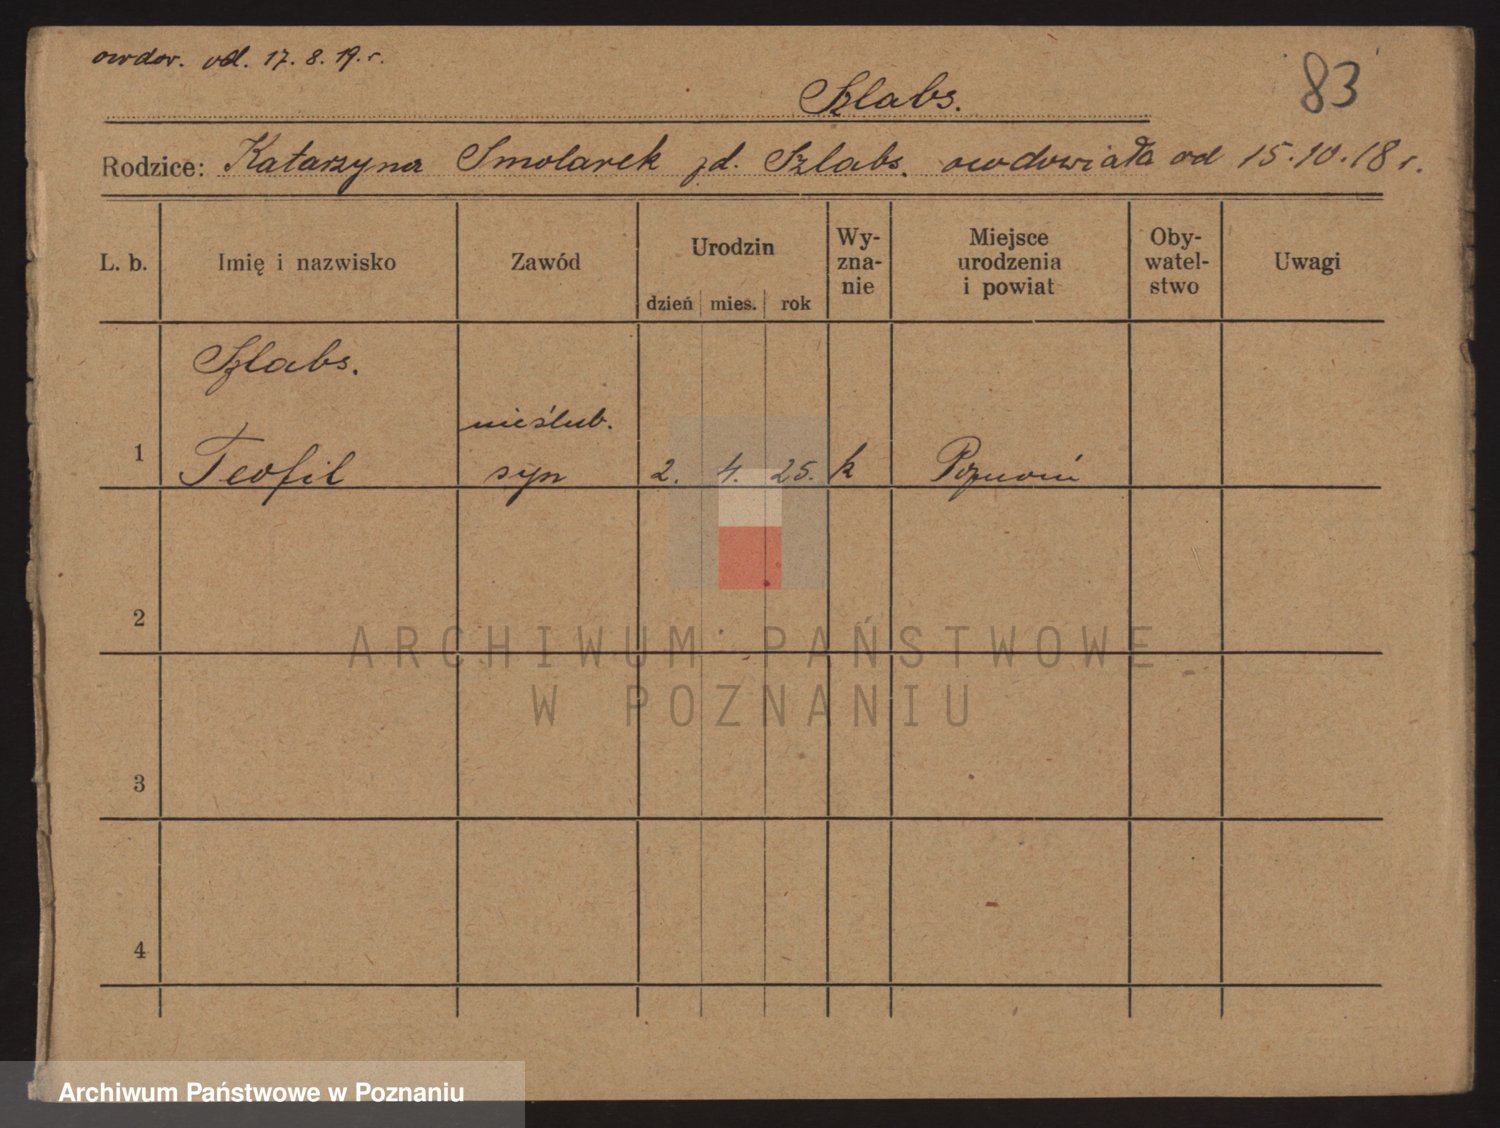 owdow. od. 17. 8. 19. r.
83
Szlabs.
Rodzice: Katarzyna Smolarek zd. Szlabs. owdowiała od 15.10.18 r.
L. b. Imię i nazwisko Zawód Urodzin dzień mies. rok Wy-
zna-
nie Miejsce
urodzenia
i powiat Oby-
watel-
stwo Uwagi
Szlabs.
nieślub.
1 Teofil syn 2. 4. 25. k Poznań
2
3
4
ARCHIWUM PAŃSTWOWE
W POZNANIU
Archiwum Państwowe w Poznaniu